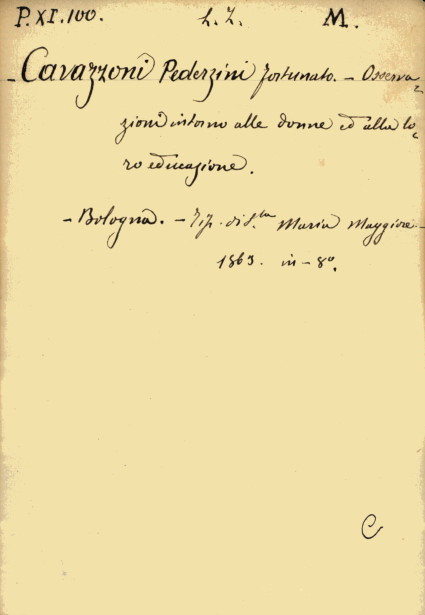 P. XI. 100. L. Z. M.
- Cavazzoni Pederzini Fortunato. - Osserva=
zioni intorno alle donne ed alla lo=
ro educazione.
- Bologna. - Tip. di S.ta Maria Maggiore. -
1863. in - 8º.
C